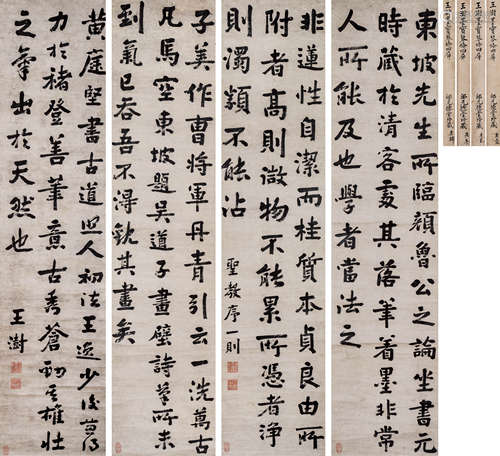 東坡先生所臨顏魯公之論坐書元
時蔵於清客處其落筆着墨非常
人所能及也學者當法之
非蓮性自潔而桂質本貞良由所
附者高則微物不能累所憑者淨
則濁類不能沾
聖教序一則
子美作曹將軍丹青引云一洗萬古
凡馬空東坡題吳道子畫壁詩筆所未
到氣已吞吾不得其畫矣
黃庭堅書古道照人初法王逸少後
力於褚登善筆意古秀蒼勁其雄壯
之氣出於天然也
王澍